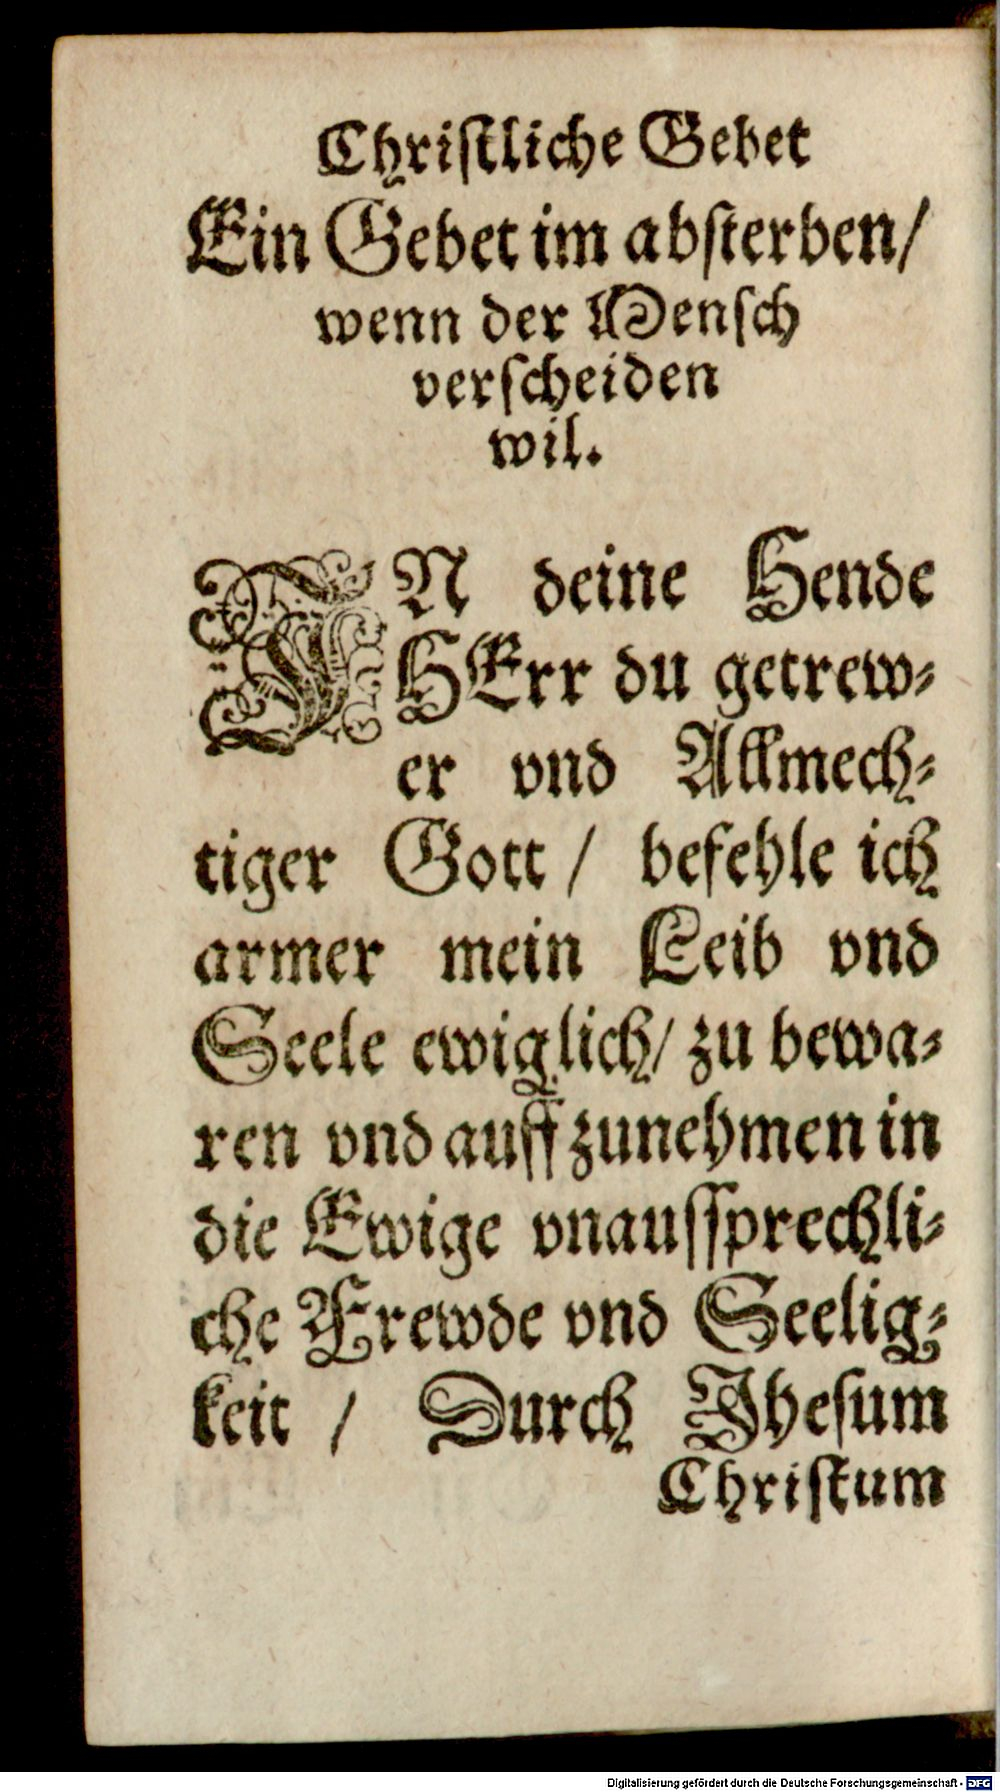 Chriſtliche Gebet
Ein Gebet im abſterben/
wenn der Menſch
verſcheiden
wil.
JN deine Hende
HErr du getrew⸗
er vnd Allmech⸗
tiger Gott / befehle ich
armer mein Leib vnd
Seele ewiglich/ zu bewa⸗
ren vnd auff zunehmen in
die Ewige vnausſprechli⸗
che Frewde vnd Seelig⸗
keit / Durch Jheſum
Chriſtum
Digitalisierung gefördert durch die Deutsche Forschungsgemeinschaft - DFG